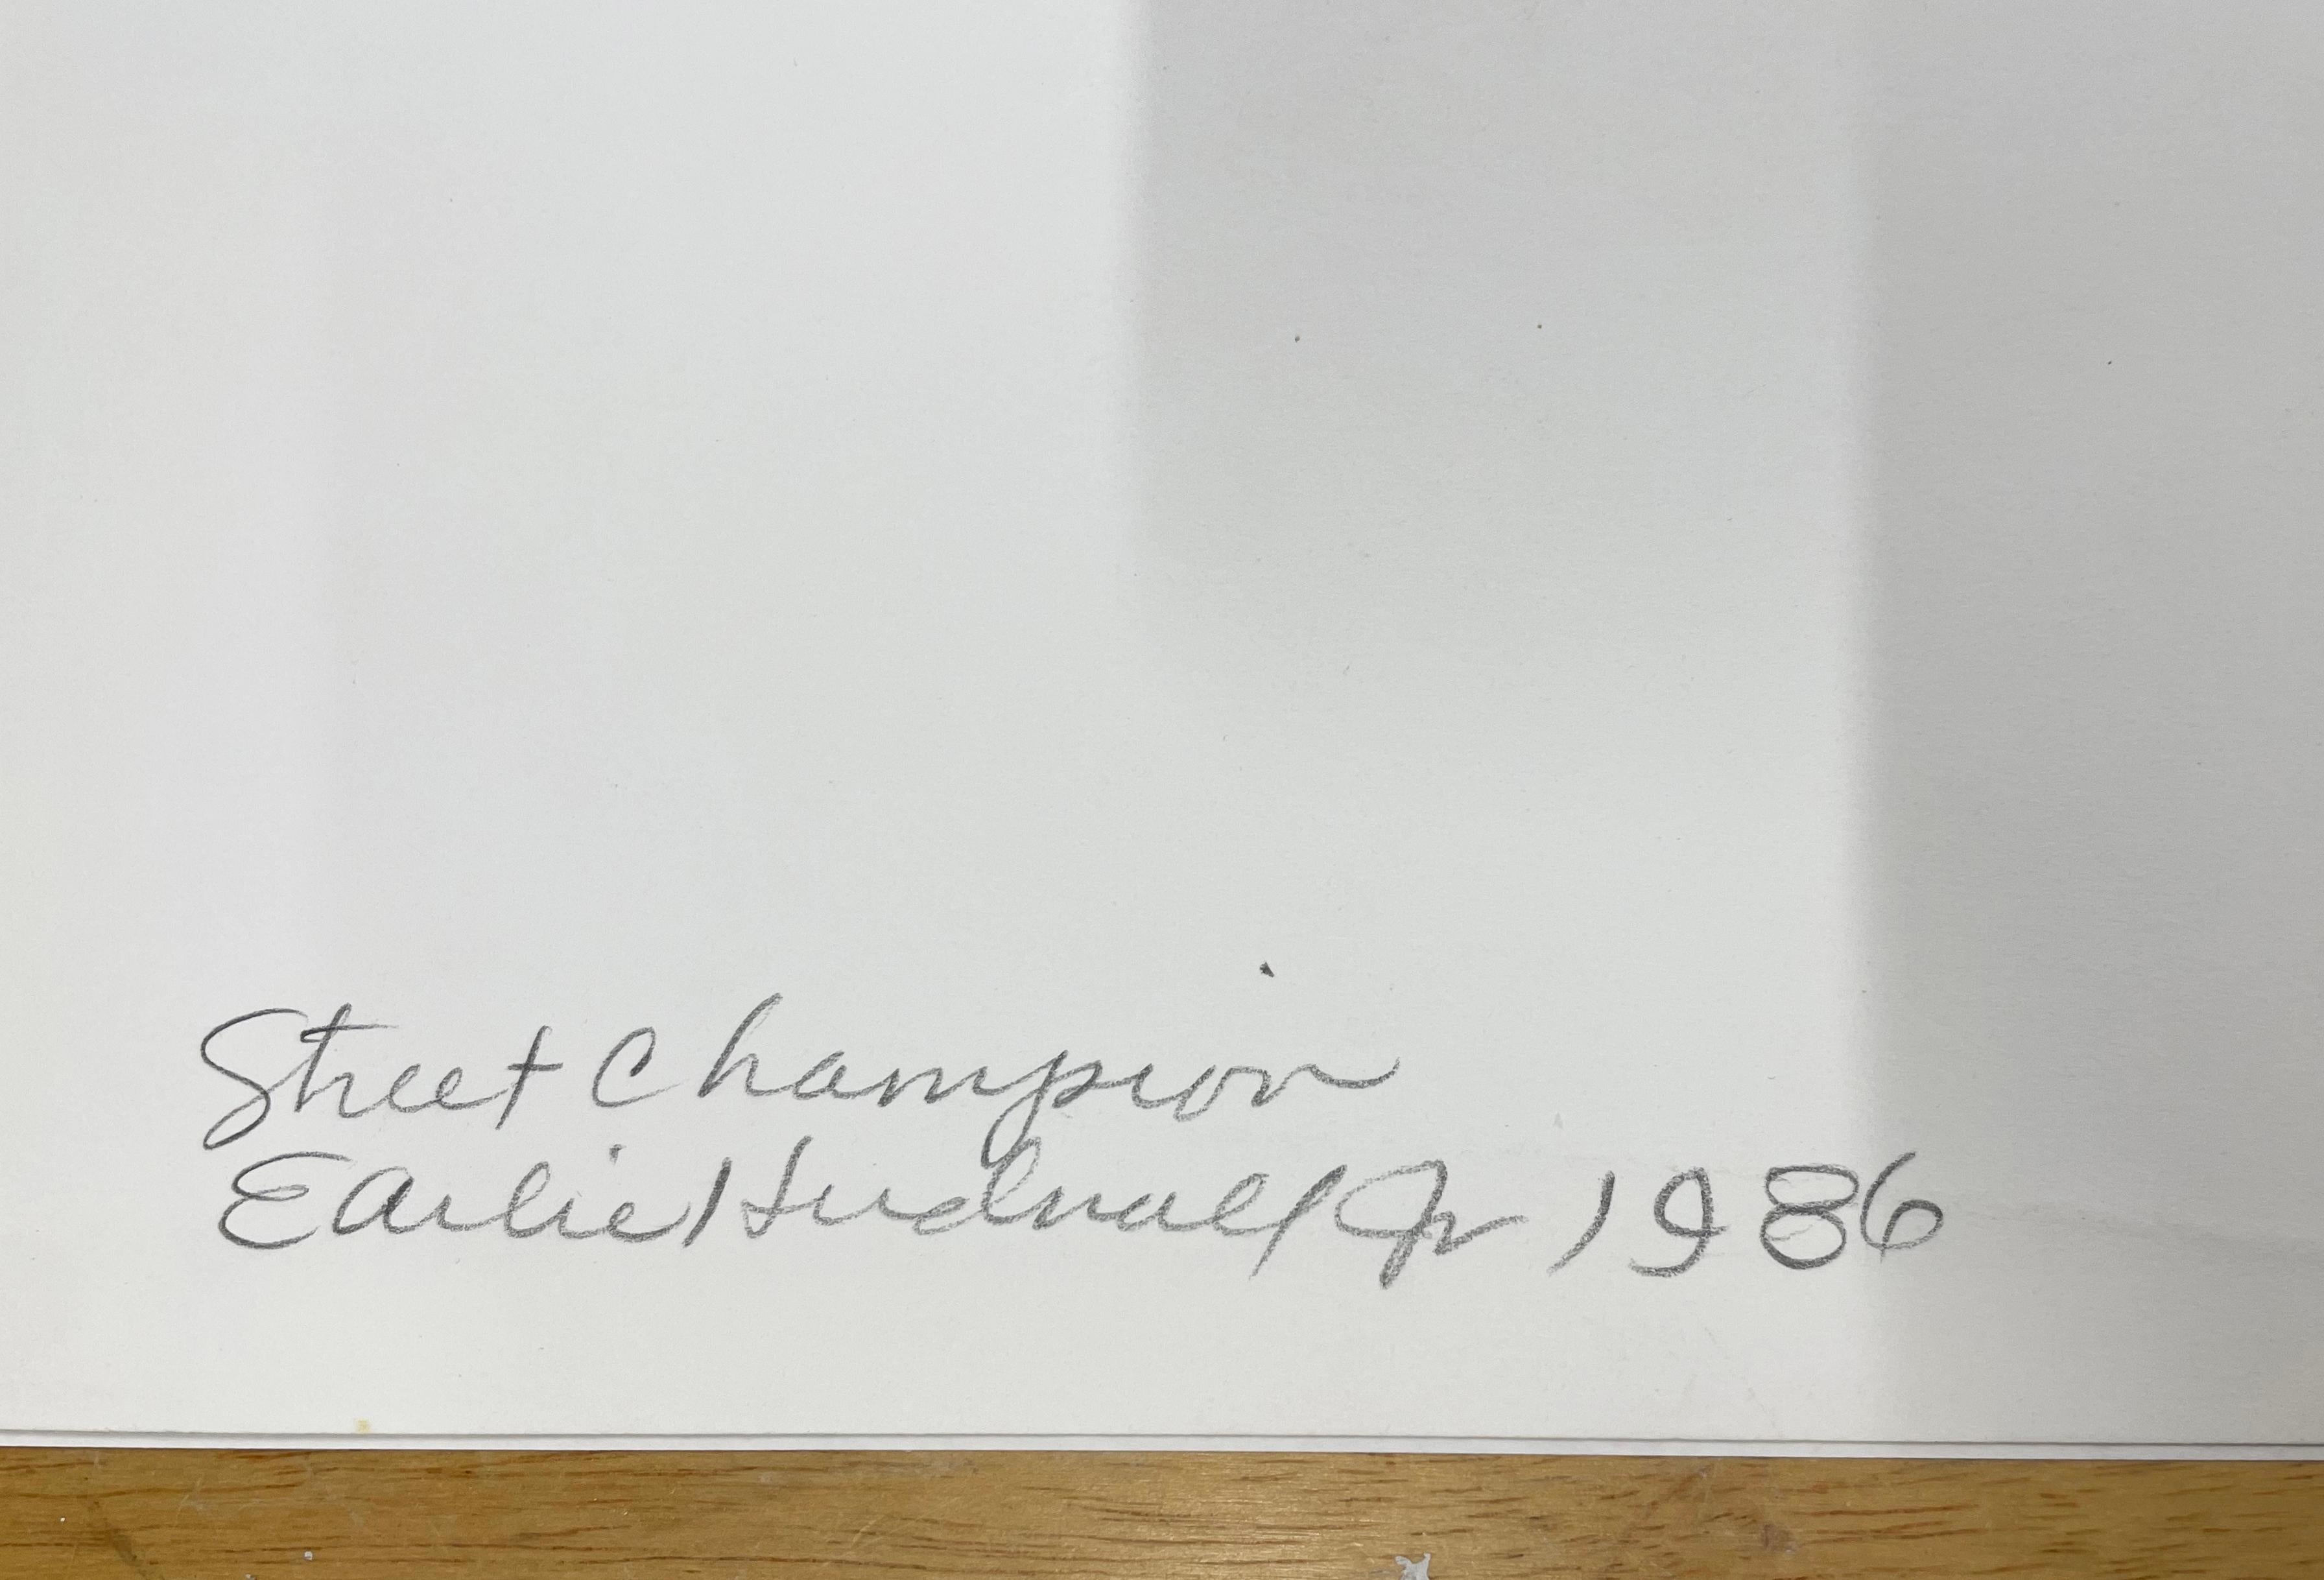 Street Champion
Earlie Hudnall Jr 1986